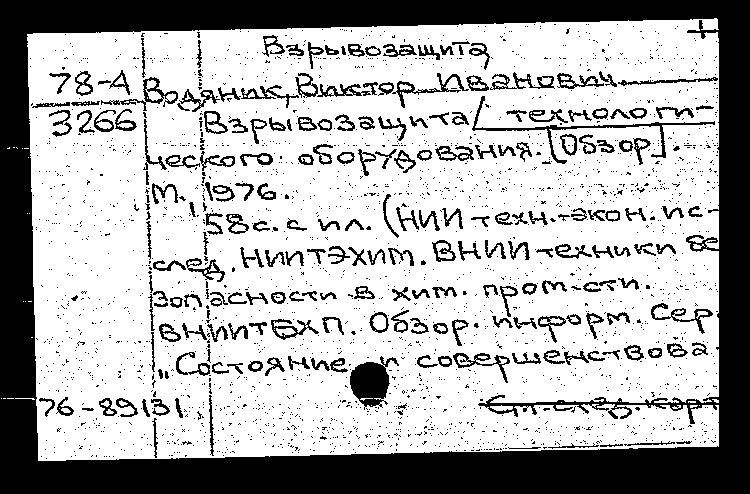 Взрывозащита
78-А Водяник, Виктор Иванович.
3266 Взрывозащита / технологи-
ческого оборудования. [Обзор].
М., 1976.
58с. с ил. (НИИ техн.-экон. ис-
след. НИИТЭХИМ. ВНИИ техники бе
зопасности в хим. пром-сти.
ВНИИТБХП. Обзор. информ. Сер.
„Состояние и совершенствова
76-89131 См. след. карт